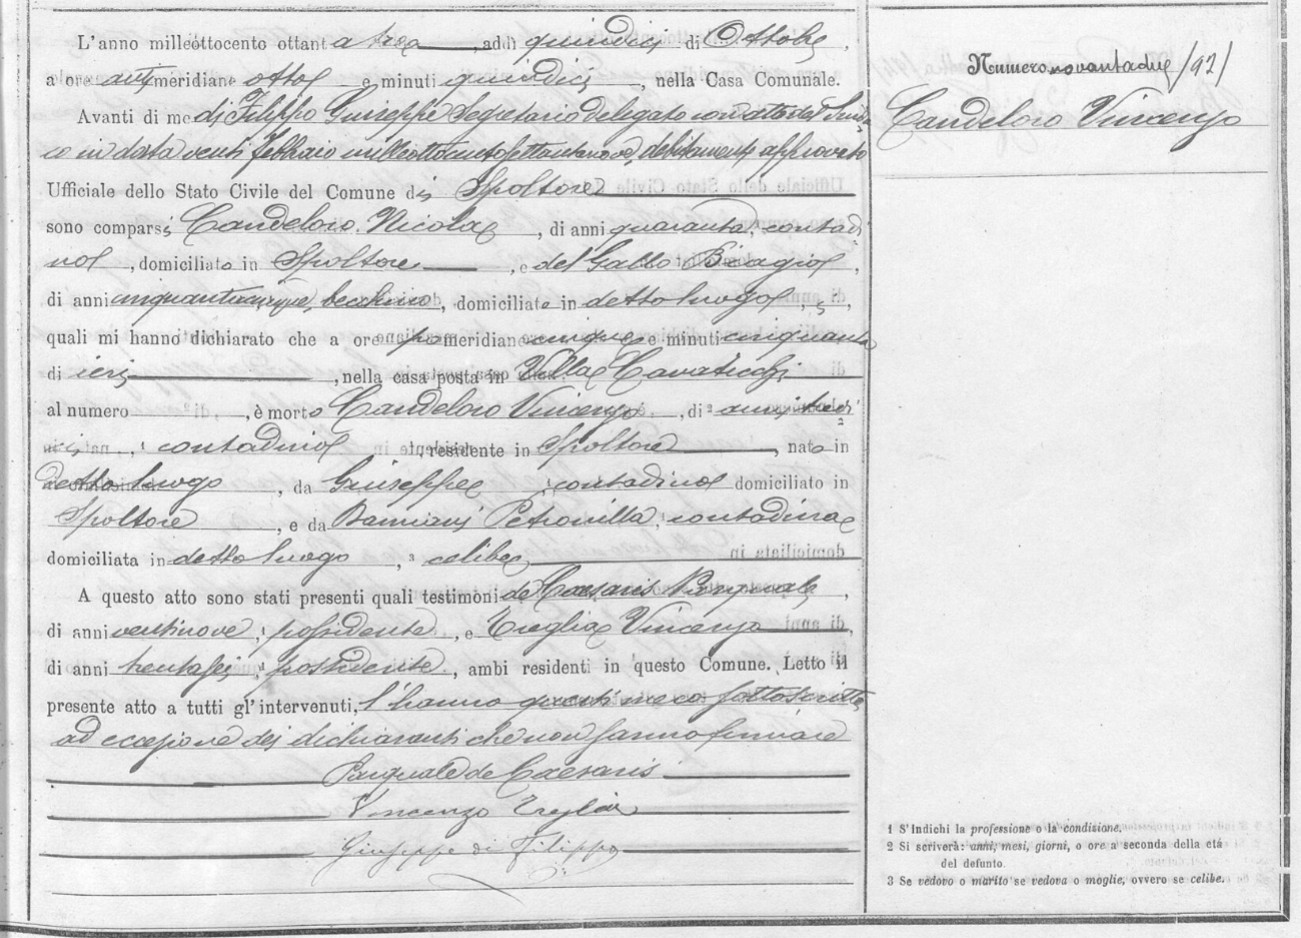 L'anno milleottocento ottantatre, addì quindici di Ottobre,
a ore antimeridiane otto e minuti quindici, nella Casa Comunale.
Avanti di me di Filippo Giuseppe Segretario delegato con atto del Sinda
co in data venti febbraio milleottocentosettantanove, debitamente approvato
Ufficiale dello Stato Civile del Comune di Spoltore
sono comparsi Candeloro Nicola, di anni quaranta, contadi
no, domiciliato in Spoltore, e del Gallo Biagio,
di anni cinquantacinque, becchino, domiciliato in detto luogo, i
quali mi hanno dichiarato che a ore pomeridiane cinque e minuti cinquanta
di ieri, nella casa posta in Villa Cavaticchi
al numero, è morto Candeloro Vincenzo, di 2 anni
, 1 contadino, residente in Spoltore, nato in
detto luogo, da Giuseppe, contadino domiciliato in
Spoltore, e da Petronilla, contadina
domiciliata in detto luogo, 3 celibe
A questo atto sono stati presenti quali testimoni de Caesaris Pasquale,
di anni ventinove, 1 possidente, e Treglia Vincenzo,
di anni trentasei, 1 possidente, ambi residenti in questo Comune. Letto il
presente atto a tutti gl'intervenuti, l'hanno questi meco sottoscritto
ad eccezione dei dichiaranti che non sanno firmare
Pasquale de Caesaris
Vincenzo Treglia
Giuseppe di Filippo
Numero novantadue /92/
Candeloro Vincenzo
1 S'indichi la professione o la condizione.
2 Si scriverà: anni, mesi, giorni, o ore a seconda della età
del defunto.
3 Se vedovo o marito se vedova o moglie, ovvero se celibe.